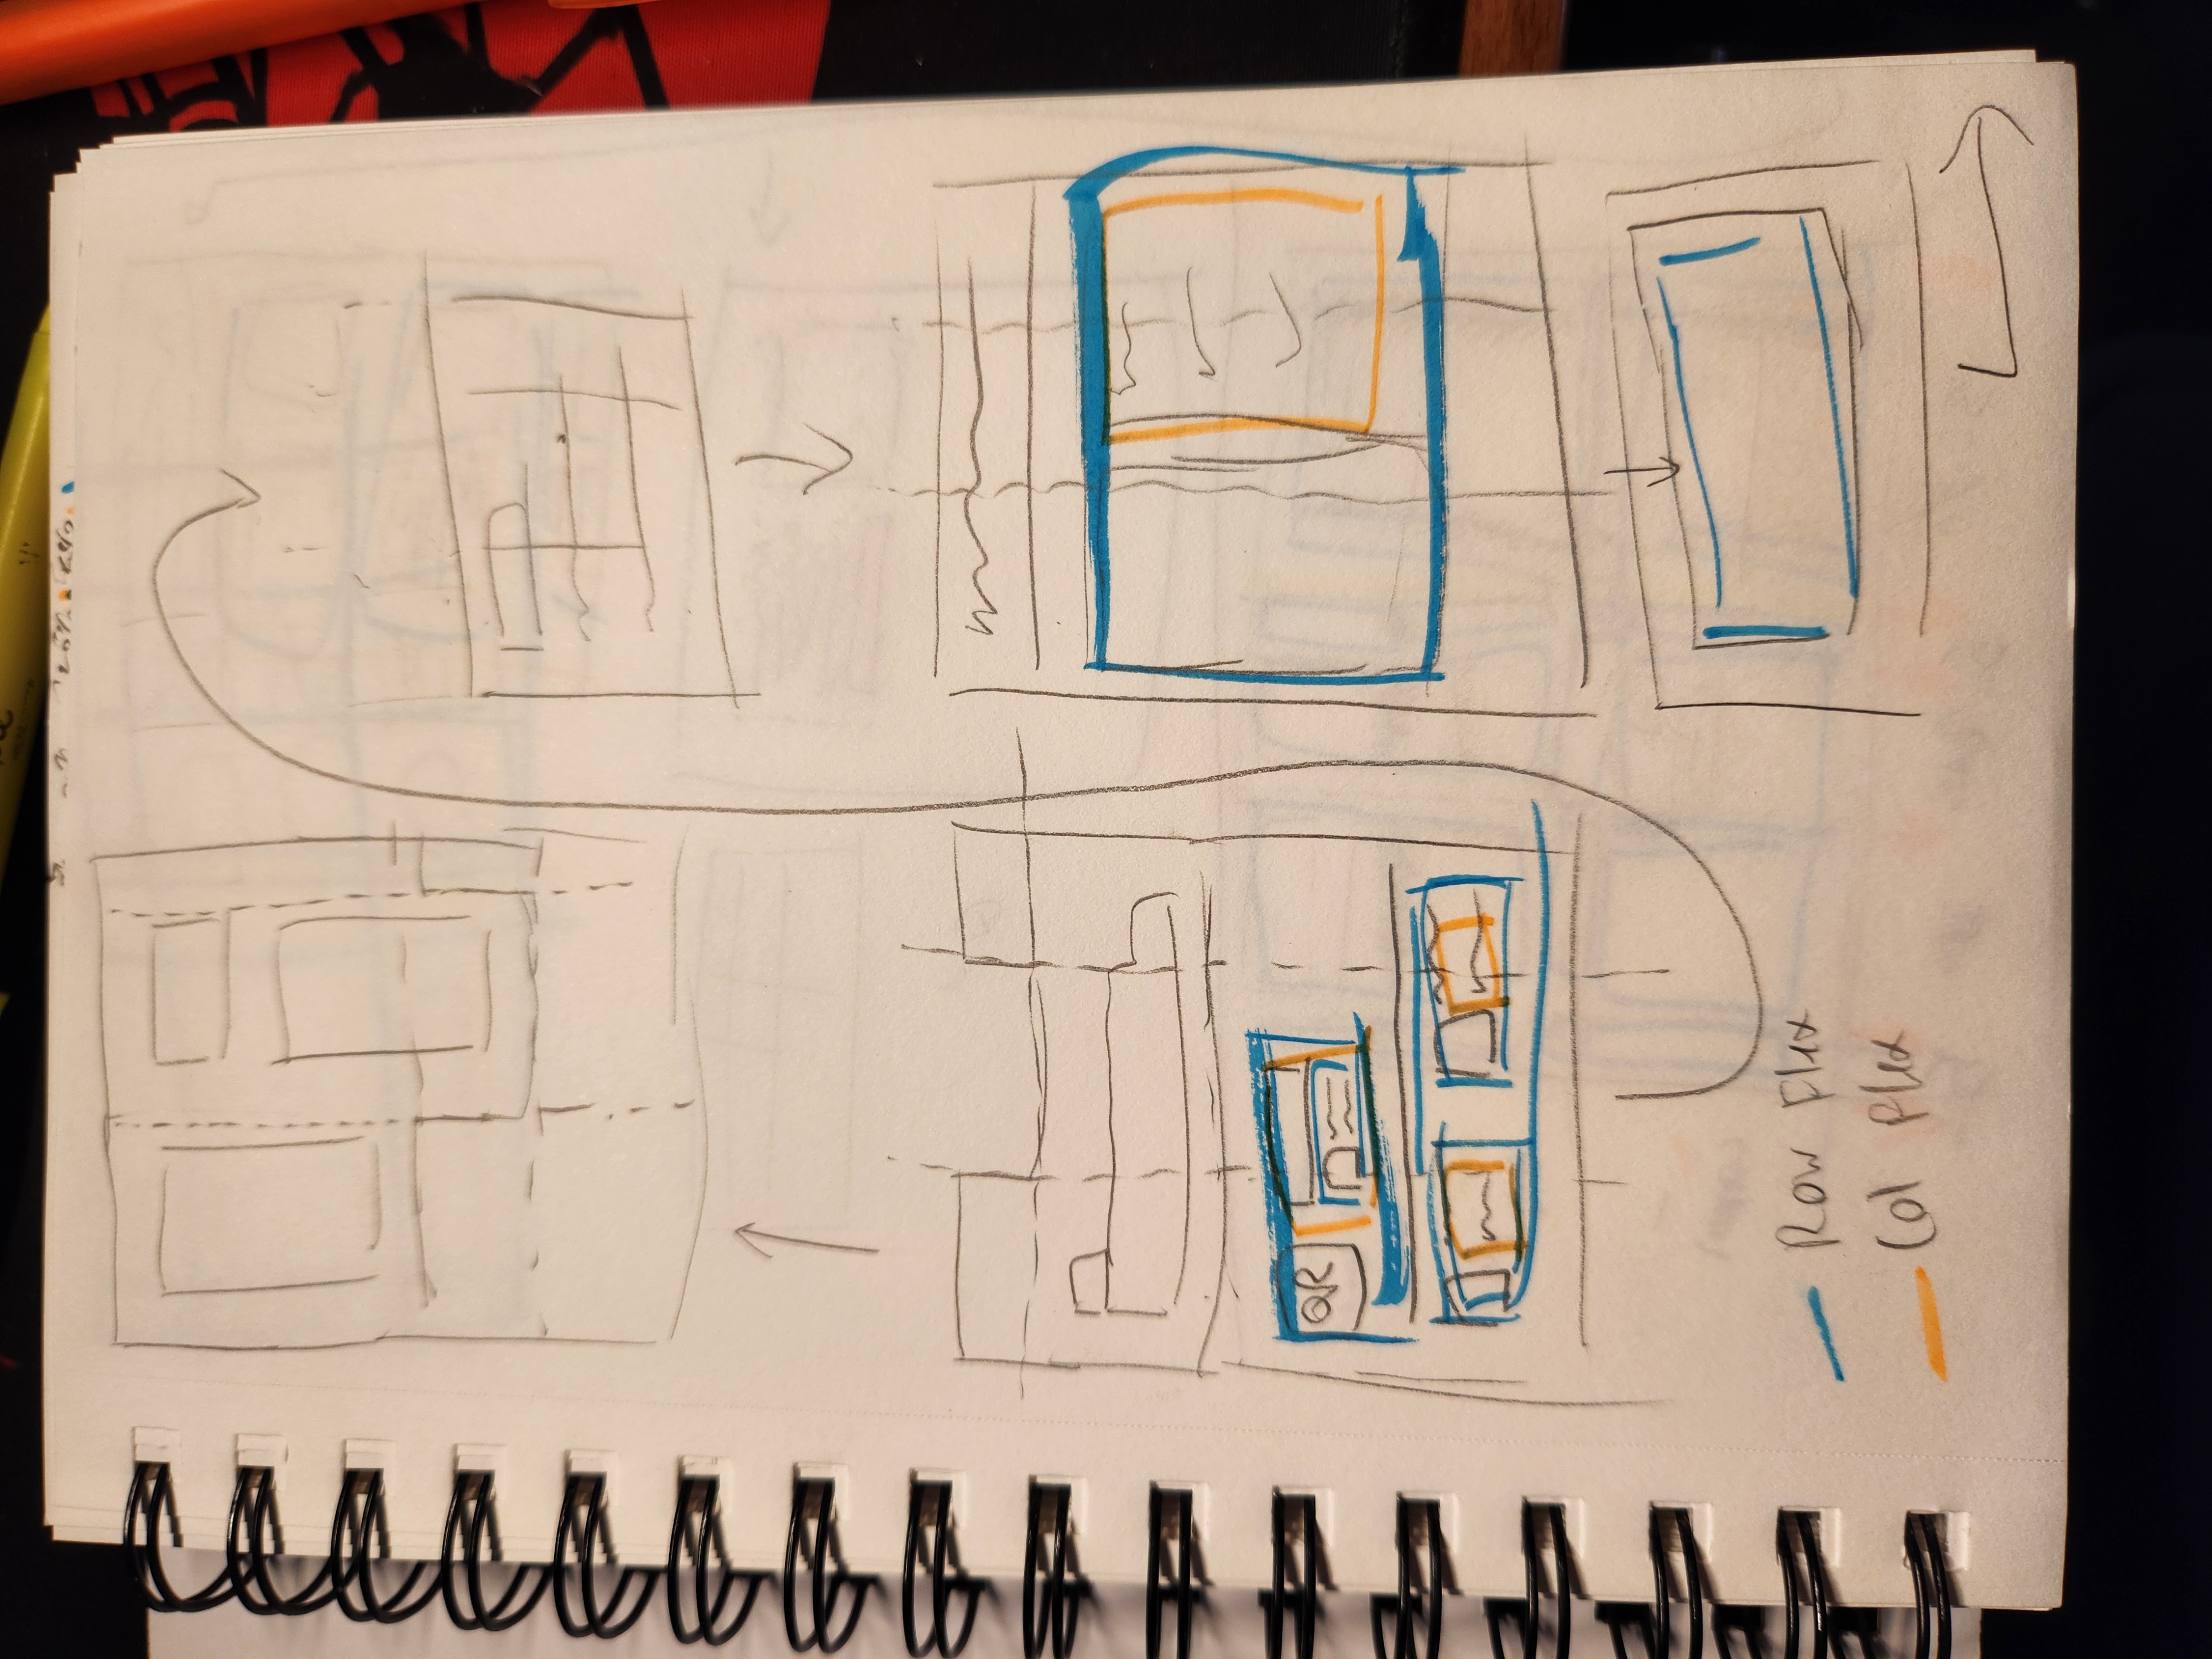 QR
Row Flex
Col Flex